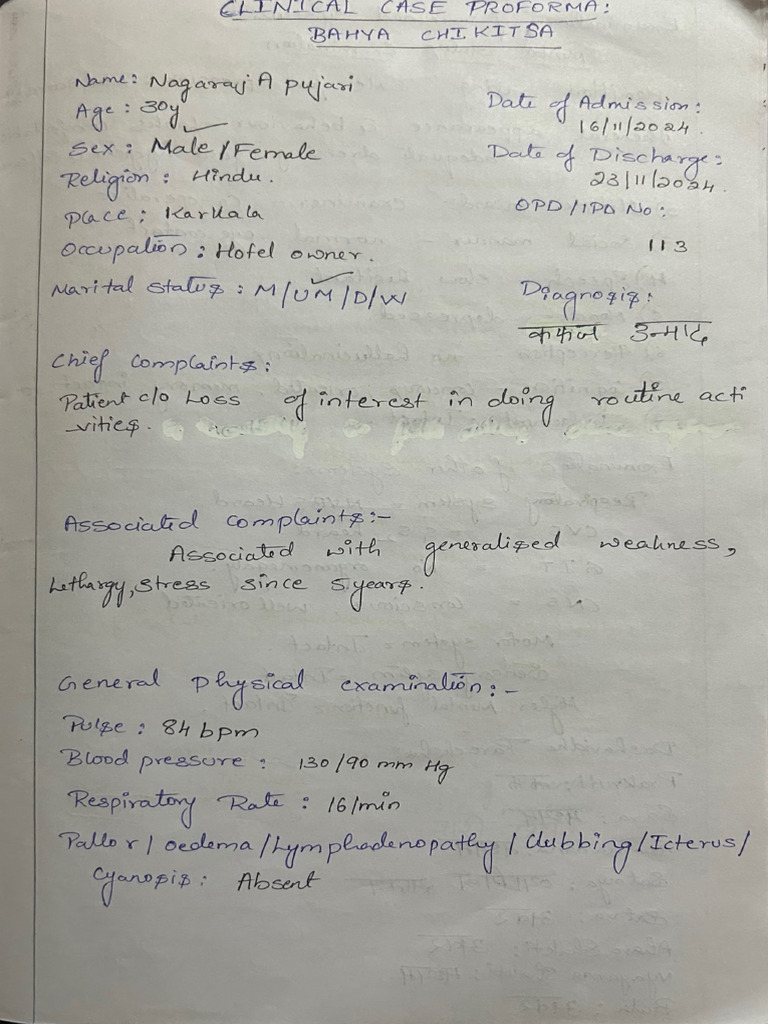 CLINICAL CASE PROFORMA:
BAHYA CHIKITSA
Name: Nagaraj A pujari
Age: 30y
Sex: Male/Female
Religion: Hindu.
Place: Karkala
Occupation: Hotel owner.
Marital Status: M/UM/D/W
Date of Admission:
16/11/2024.
Date of Discharge:
23/11/2024.
OPD/IPD No:
113
Diagnosis:
कफज उन्माद
Chief Complaints:
Patient c/o Loss of interest in doing routine acti
-vities.
Associated complaints:-
Associated with generalised weakness,
Lethargy, stress since 5 years.
General Physical examination:-
Pulse: 84 bpm
Blood pressure: 130/90 mm Hg
Respiratory Rate: 16/min
Pallor/oedema/Lymphadenopathy/Clubbing/Icterus/
Cyanosis: Absent